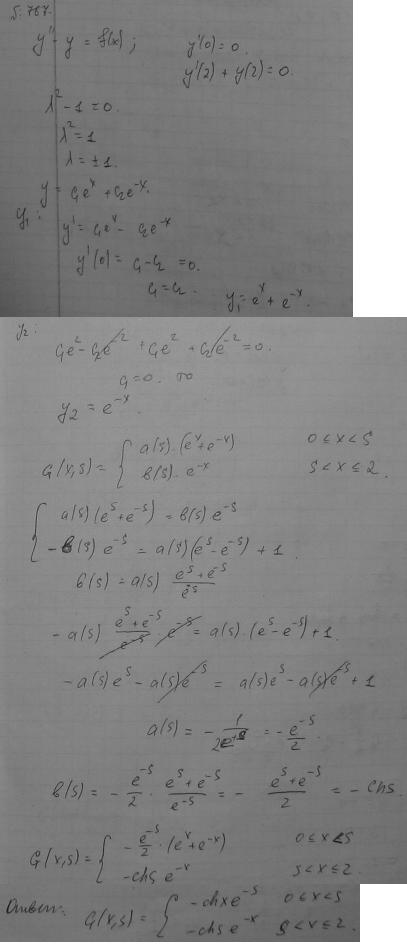 5: 767.
y'' - y = f(x) ; y'(0) = 0.
y'(2) + y(2) = 0.
λ² - 1 = 0.
λ² = 1
λ = ± 1.
y = c₁eˣ + c₂e⁻ˣ.
y₁:
y' = c₁eˣ - c₂e⁻ˣ
y'(0) = c₁ - c₂ = 0.
c₁ = c₂. y₁ = eˣ + e⁻ˣ.
y₂:
c₁e² - c₂e⁻² + c₁e² + c₂e⁻² = 0.
c₁ = 0. то
y₂ = e⁻ˣ.
G(x,s) = { a(s)·(eˣ + e⁻ˣ) 0 ≤ x < s
b(s)·e⁻ˣ s < x ≤ 2.
{ a(s)(eˢ + e⁻ˢ) = b(s) e⁻ˢ
-b(s) e⁻ˢ = a(s)(eˢ - e⁻ˢ) + 1
b(s) = a(s) (eˢ + e⁻ˢ)/e⁻ˢ
-a(s) (eˢ + e⁻ˢ)/e⁻ˢ · e⁻ˢ = a(s)·(eˢ - e⁻ˢ) + 1.
-a(s)eˢ - a(s)e⁻ˢ = a(s)eˢ - a(s)e⁻ˢ + 1
a(s) = - 1/2eˢ = - e⁻ˢ/2.
b(s) = - e⁻ˢ/2 · (eˢ + e⁻ˢ)/e⁻ˢ = - (eˢ + e⁻ˢ)/2 = - chs.
G(x,s) = { - e⁻ˢ/2 · (eˣ + e⁻ˣ) 0 ≤ x < s
-chs e⁻ˣ s < x ≤ 2.
Ответ: G(x,s) = { - chx e⁻ˢ 0 ≤ x < s
- chs e⁻ˣ s < x ≤ 2.